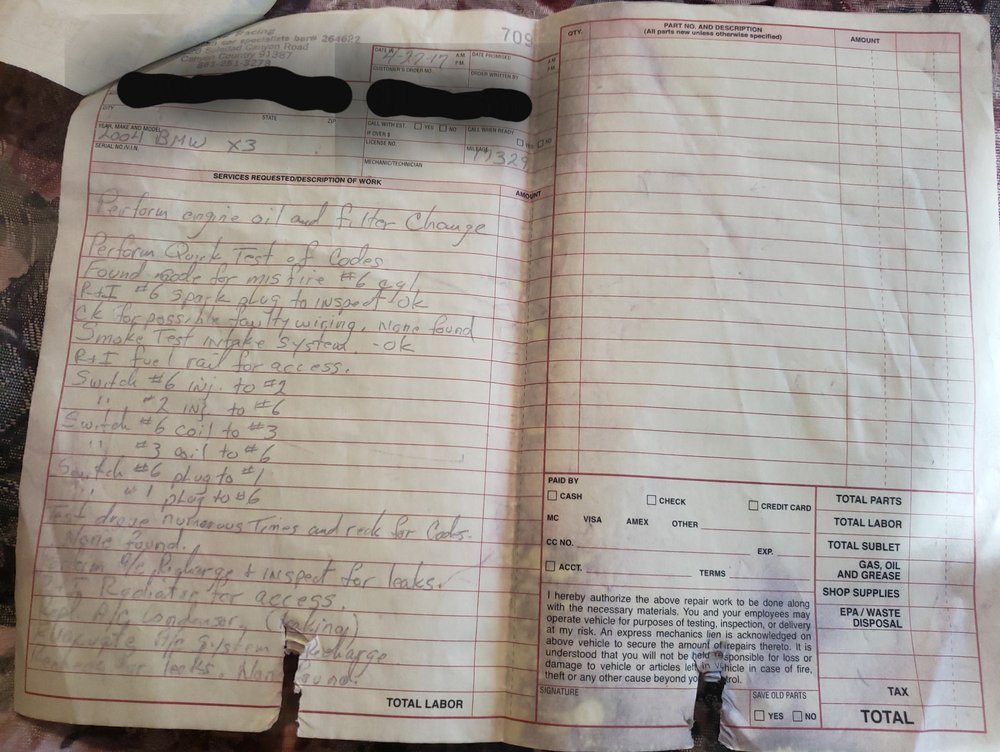 Racing
specialists bar# 264682
Soledad Canyon Road
Canyon Country 91387
661-251-3278
709
DATE
4-27-17
A.M.
P.M.
DATE PROMISED
A.M.
P.M.
CUSTOMER'S ORDER NO.
ORDER WRITTEN BY
CITY
STATE
ZIP
CALL WITH EST. YES NO
CALL WHEN READY
IF OVER $
YES NO
YEAR, MAKE AND MODEL
2004 BMW X3
LICENSE NO.
MILEAGE
SERIAL NO./V.I.N.
MECHANIC/TECHNICIAN
SERVICES REQUESTED/DESCRIPTION OF WORK
AMOUNT
Perform engine oil and filter Change
Perform Quick Test of Codes
Found code for misfire #6 cyl.
R+I #6 Spark plug to inspect - ok
CK for possible faulty wiring. None found
Smoke Test intake System. -ok
R+I fuel rail for access.
Switch #6 inj. to #2
" #2 inj. to #6
Switch #6 coil to #3
" #3 coil to #6
Switch #6 plug to #1
" #1 plug to #6
Test drove numerous Times and reck for Codes.
None found.
Perform A/c Recharge + inspect for leaks.
R+I Radiator for access
Repl. A/C Condenser. (leaking)
Evacuate A/c System Recharge
leaks. None found.
TOTAL LABOR
QTY.
PART NO. AND DESCRIPTION
(All parts new unless otherwise specified)
AMOUNT
PAID BY
CASH CHECK CREDIT CARD
MC VISA AMEX OTHER
CC NO. EXP.
ACCT. TERMS
I hereby authorize the above repair work to be done along
with the necessary materials. You and your employees may
operate vehicle for purposes of testing, inspection, or delivery
at my risk. An express mechanics lien is acknowledged on
above vehicle to secure the amount of repairs thereto. It is
understood that you will not be held responsible for loss or
damage to vehicle or articles left in vehicle in case of fire,
theft or any other cause beyond your control.
SIGNATURE
SAVE OLD PARTS
YES NO
TOTAL PARTS
TOTAL LABOR
TOTAL SUBLET
GAS, OIL
AND GREASE
SHOP SUPPLIES
EPA / WASTE
DISPOSAL
TAX
TOTAL